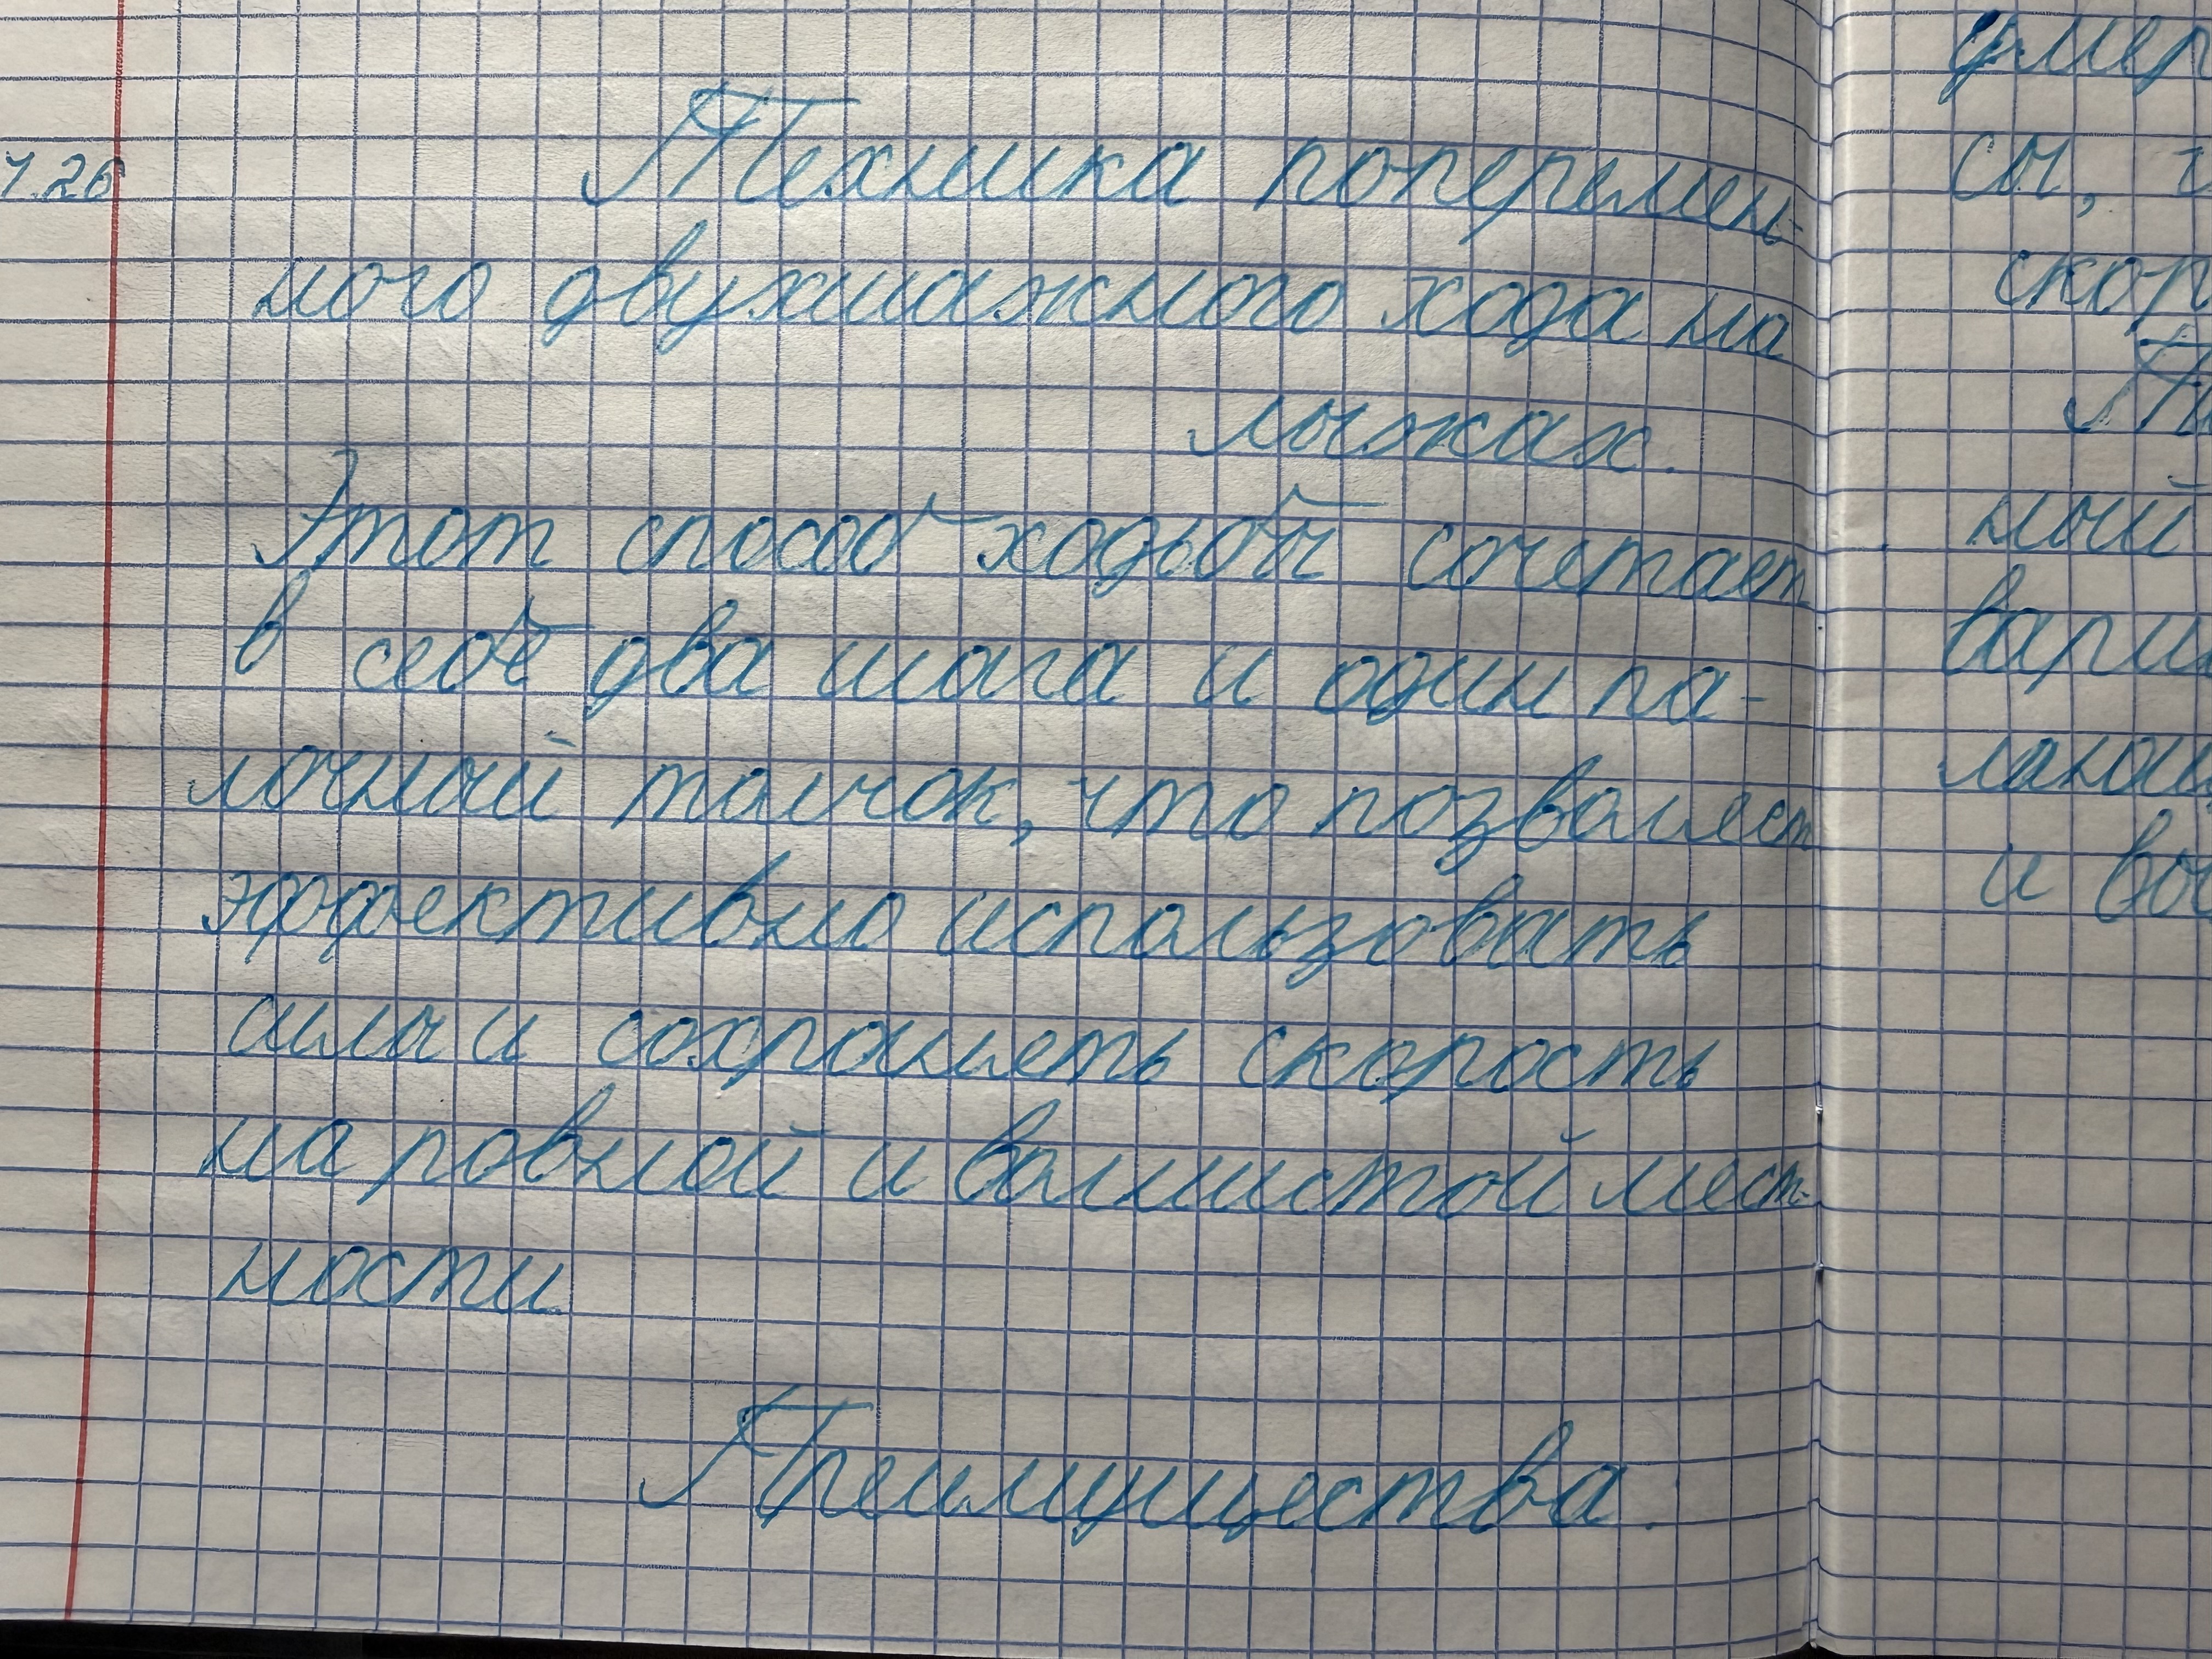 1.26
Техника поперемен-
ного двухшажного хода на
лыжах.
Этот способ ходьбы сочетает
в себе два шага и один па-
лочный толчок, что позволяет
эффективно использовать
силы и сохранять скорость
на ровной и волнистой мест-
ности.
Преимущества.
сы,
скор
ный
вари
и